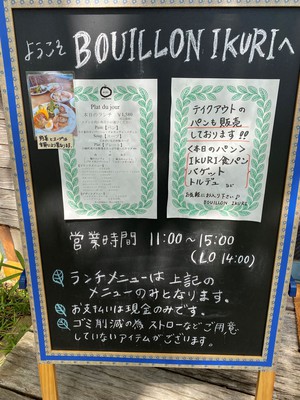 ようこそ BOUILLON IKURIへ
Plat du jour
本日のランチ
テイクアウトの
パンも販売
しております!!
<本日のパン>
IKURI食パン
バゲット
トルデュ など
お気軽にお入り下さい♪
BOUILLON IKURI
営業時間 11:00〜15:00
(LO 14:00)
ランチメニューは上記の
メニューのみとなります。
お支払いは現金のみです。
ゴミ削減の為ストローなどご用意
していないアイテムがございます。